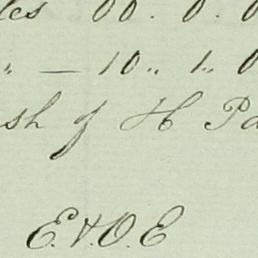 les 00. 0. 0
" — 10 " 1 " 0
sh of H Pa
E. & O. E